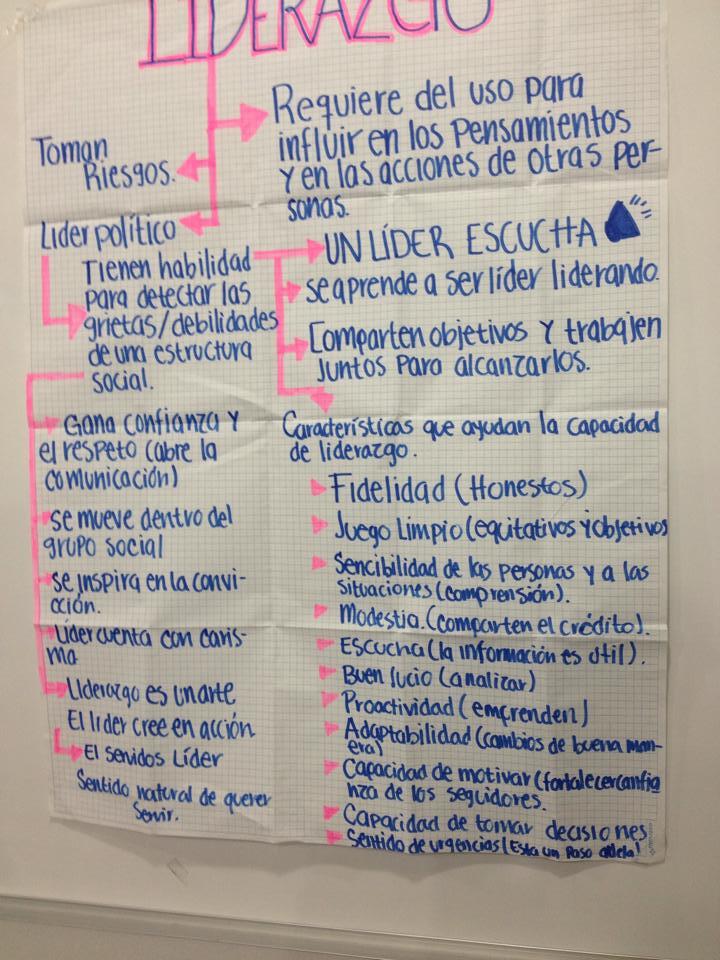 LIDERAZGO
Requiere del uso para
influir en los Pensamientos
Y en las acciones de otras per-
sonas.
Toman
Riesgos.
Lider político
Tienen habilidad
para detectar las
grietas/debilidades
de una estructura
social.
UN LÍDER ESCUCHA
se aprende a ser líder liderando.
Comparten objetivos Y trabajen
Juntos Para alcanzarlos.
Gana confianza Y
el respeto (abre la
comunicación)
se mueve dentro del
grupo social
se inspira en la convi-
cción.
Líder cuenta con caris-
ma
Liderazgo es un arte
El lider cree en acción
El senidos Líder
Sentido natural de querer
Servir.
Características que ayudan la capacidad
de liderazgo.
Fidelidad (Honestos)
Juego Limpio (equitativos y objetivos
Sencibilidad de las personas y a las
situaciones (comprensión).
Modestia. (comparten el crédito).
Escucha (la información es útil).
Buen Jucio (analizar)
Proactividad (emprenden)
Adaptabilidad (cambios de buena man-
era)
Capacidad de motivar (fortalecer confia
nza de los seguidores.
Capacidad de tomar decisiones
Sentido de urgencias (Esta un Paso